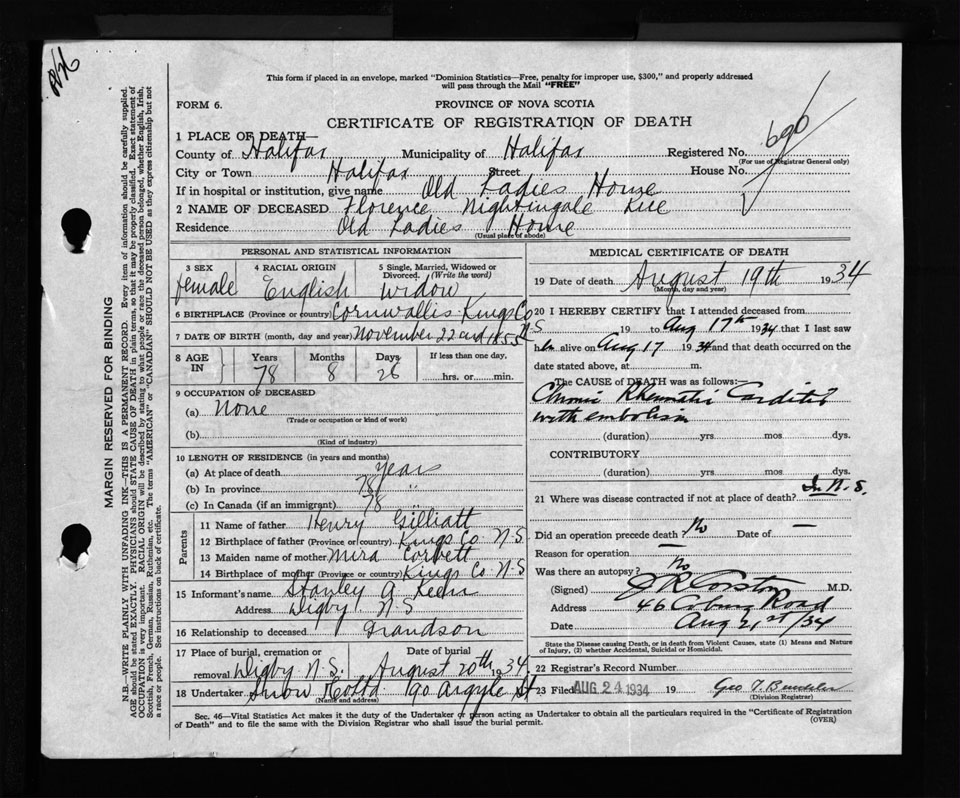 This form if placed in an envelope, marked "Dominion Statistics—Free, penalty for improper use, $300," and properly addressed
will pass through the Mail "FREE"
FORM 6.
PROVINCE OF NOVA SCOTIA
CERTIFICATE OF REGISTRATION OF DEATH
690
1 PLACE OF DEATH—
County of Halifax Municipality of Halifax Registered No.
(For use of Registrar General only)
City or Town Halifax Street House No.
If in hospital or institution, give name Old Ladies Home
2 NAME OF DECEASED Florence Nightingale Rice
Residence Old Ladies Home
(Usual place of abode)
PERSONAL AND STATISTICAL INFORMATION
3 SEX 4 RACIAL ORIGIN 5 Single, Married, Widowed or Divorced. (Write the word)
female English widow
6 BIRTHPLACE (Province or country) Cornwallis Kings Co N S
7 DATE OF BIRTH (month, day and year) November 22nd 1855
8 AGE IN Years Months Days If less than one day,
78 8 26 hrs. or min.
9 OCCUPATION OF DECEASED
(a) None
(Trade or occupation or kind of work)
(b)
(Kind of industry)
10 LENGTH OF RESIDENCE (in years and months)
(a) At place of death years
(b) In province 78 "
(c) In Canada (if an immigrant) 78
Parents
11 Name of father Henry Gilliatt
12 Birthplace of father (Province or country) Kings Co N.S
13 Maiden name of mother Mira Corbett
14 Birthplace of mother (Province or country) Kings Co N.S
15 Informant's name Stanley A
Address Digby N S
16 Relationship to deceased Grandson
17 Place of burial, cremation or removal Date of burial
Digby N.S. August 20th 1934
18 Undertaker Snow & Co Ltd 190 Argyle St
(Name and address)
MEDICAL CERTIFICATE OF DEATH
19 Date of death August 19th 1934
(Month, day and year)
20 I HEREBY CERTIFY that I attended deceased from
19 to Aug 17th 1934 that I last saw
her alive on Aug 17 1934 and that death occurred on the
date stated above, at m.
The CAUSE of DEATH was as follows:—
Chronic Rheumatic Carditis
with embolism
(duration) yrs. mos. dys.
CONTRIBUTORY
(duration) yrs. mos. dys.
21 Where was disease contracted if not at place of death? In N.S.
Did an operation precede death? No Date of —
Reason for operation —
Was there an autopsy? No
(Signed) J R Corston M.D.
Address 46 Coburg Road
Date Aug 21st/34
State the Disease causing Death, or in death from Violent Causes, state (1) Means and Nature
of Injury, (2) whether Accidental, Suicidal or Homicidal.
22 Registrar's Record Number
23 Filed AUG 24 1934 19 Geo T
(Division Registrar)
Sec. 46—Vital Statistics Act makes it the duty of the Undertaker or person acting as Undertaker to obtain all the particulars required in the "Certificate of Registration
of Death" and to file the same with the Division Registrar who shall issue the burial permit.
(OVER)
MARGIN RESERVED FOR BINDING
N.B.—WRITE PLAINLY WITH UNFADING INK—THIS IS A PERMANENT RECORD. Every item of information should be carefully supplied.
AGE should be stated EXACTLY. PHYSICIANS should STATE CAUSE OF DEATH in plain terms, so that it may be properly classified. Exact statement of
OCCUPATION is very important. RACIAL ORIGIN will be described by stating to what people or race the deceased person belonged, whether English, Irish,
Scottish, French, German, Russian, Ruthenian, etc. The terms "AMERICAN" or "CANADIAN" SHOULD NOT BE USED as they express citizenship but not
a race or people. See instructions on back of certificate.